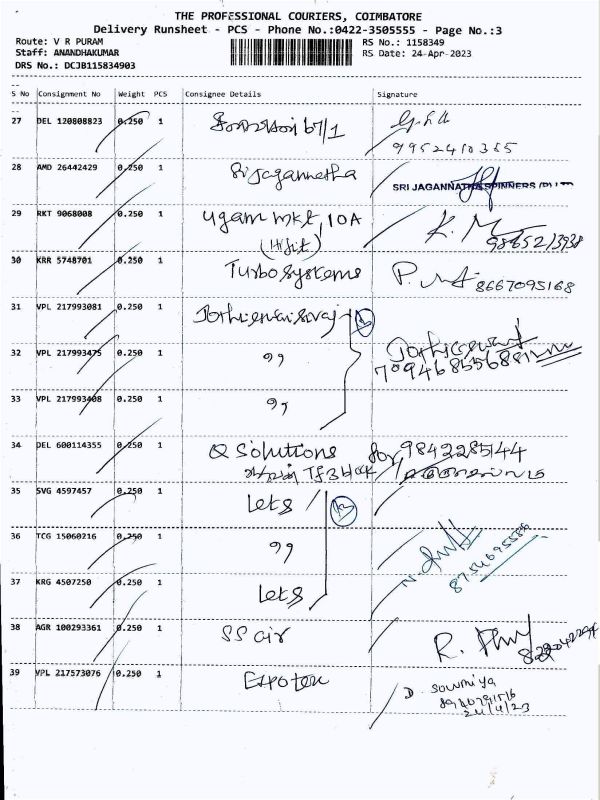 THE PROFESSIONAL COURIERS, COIMBATORE
Delivery Runsheet - PCS - Phone No.:0422-3505555 - Page No.:3
Route: V R PURAM
RS No.: 1158349
Staff: ANANDHAKUMAR
RS Date: 24-Apr-2023
DRS No.: DCJB115834903
S No Consignment No Weight PCS Consignee Details Signature
27 DEL 120808823 0.250 1 67/1
9952410355
28 AMD 26442429 0.250 1 Sri Jagannatha
SRI JAGANNATHA SPINNERS (P) LTD
29 RKT 9068008 0.250 1 Ugam mkt, 10A K. M
30 KRR 5748701 0.250 1 Turbo systems P. 8667095168
31 VPL 217993081 0.250 1
32 VPL 217993475 0.250 1 ,,
33 VPL 217993408 0.250 1 ,,
34 DEL 600114355 0.250 1 Q Solutions for 9842285144
35 SVG 4597457 0.250 1 Lets
36 TCG 15060216 0.250 1 ,,
8754695586
37 KRG 4507250 0.250 1 Lets
38 AGR 100293361 0.250 1 SS air R.
39 VPL 217573076 0.250 1
D. Sowmiya
24/4/23